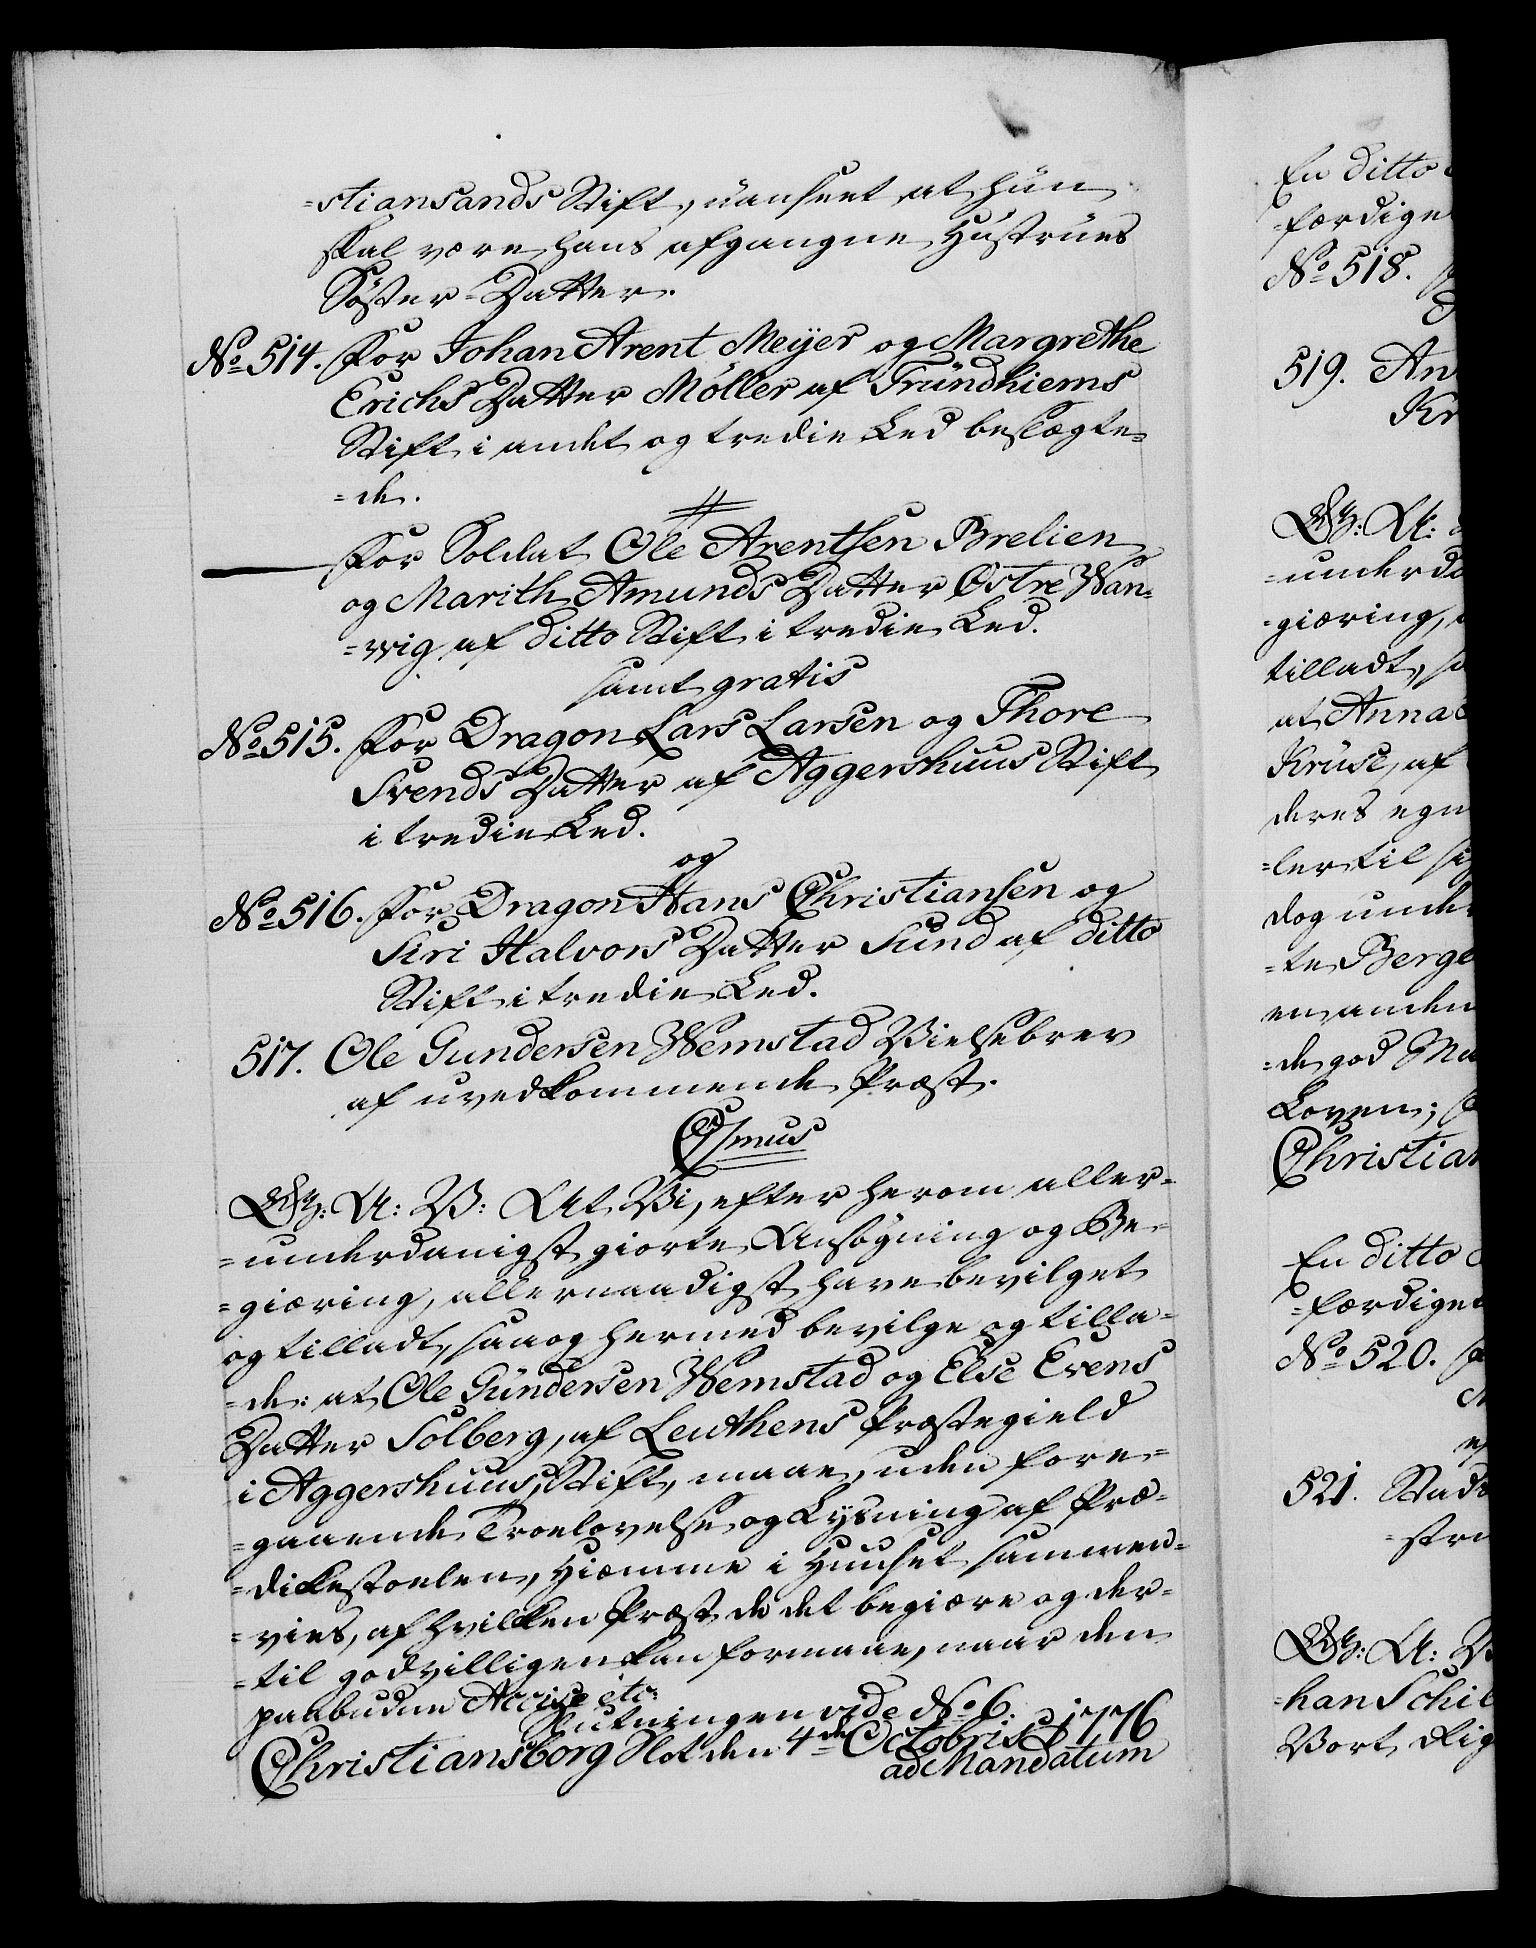 =stiansands Stift, uanseet at hun
skal være hans afgangne Hustrues
Søster-Datter.
No 514. For Johan Arent Meijer og Margrethe
Erichs Datter Møller af Trundhiems
Stift i andet og tredie Led beslægte=
=de.
For Soldat Ole Arentsen Brelien
og Marith Amunds Datter Østre Wan=
=wig af ditto Stift i tredie Led.
samt gratis
No 515. For Dragon Lars Larsen og Thore
Svends Datter af Aggershuus Stift
i tredie Led.
og
No 516. For Dragon Hans Christiansen og
Siri Halvors Datter Sund af ditto
Stift i tredie Led.
517. Ole Gundersen Wemstad Vielsebrev
af uvedkommende Præst.
Osmus
G: A: V: At Vi, efter herom aller=
=underdanigst giorte Ansøgning og Be=
=giæring, allernaadigst have bevilget
og tilladt, saa og hermed bevilge og tilla=
=de: at Ole Gundersen Wemstad og Else Evens
Datter Solberg, af Leuthens Præstegield
i Aggershuus Stift, maae, uden fore=
=gaaende Troelovelse og Lysning af Præ=
=dikestoelen, hiemme i Huuset sammen=
=vies, af hvilken Præst de det begiære og der=
=til godvilligen kan formaae, naar den
paabudne Accise etc:
Slutningen vide No 6.
Christiansborg Slot den 4de Octobris 1776
ad Mandatum
En ditto
=færdige
No 518.
519. An
Kr
G: A:
=underda
=giæring,
tilladt, sa
at Anna
Krüse, af
deres egn
=ler til si
dog under
=te Berge
en anden
=de god Ma
Loven; s
Christian
En ditto
=færdiget
No 520.
521. Stads
=stru
G: A: V
=han Schil
Vort Rig